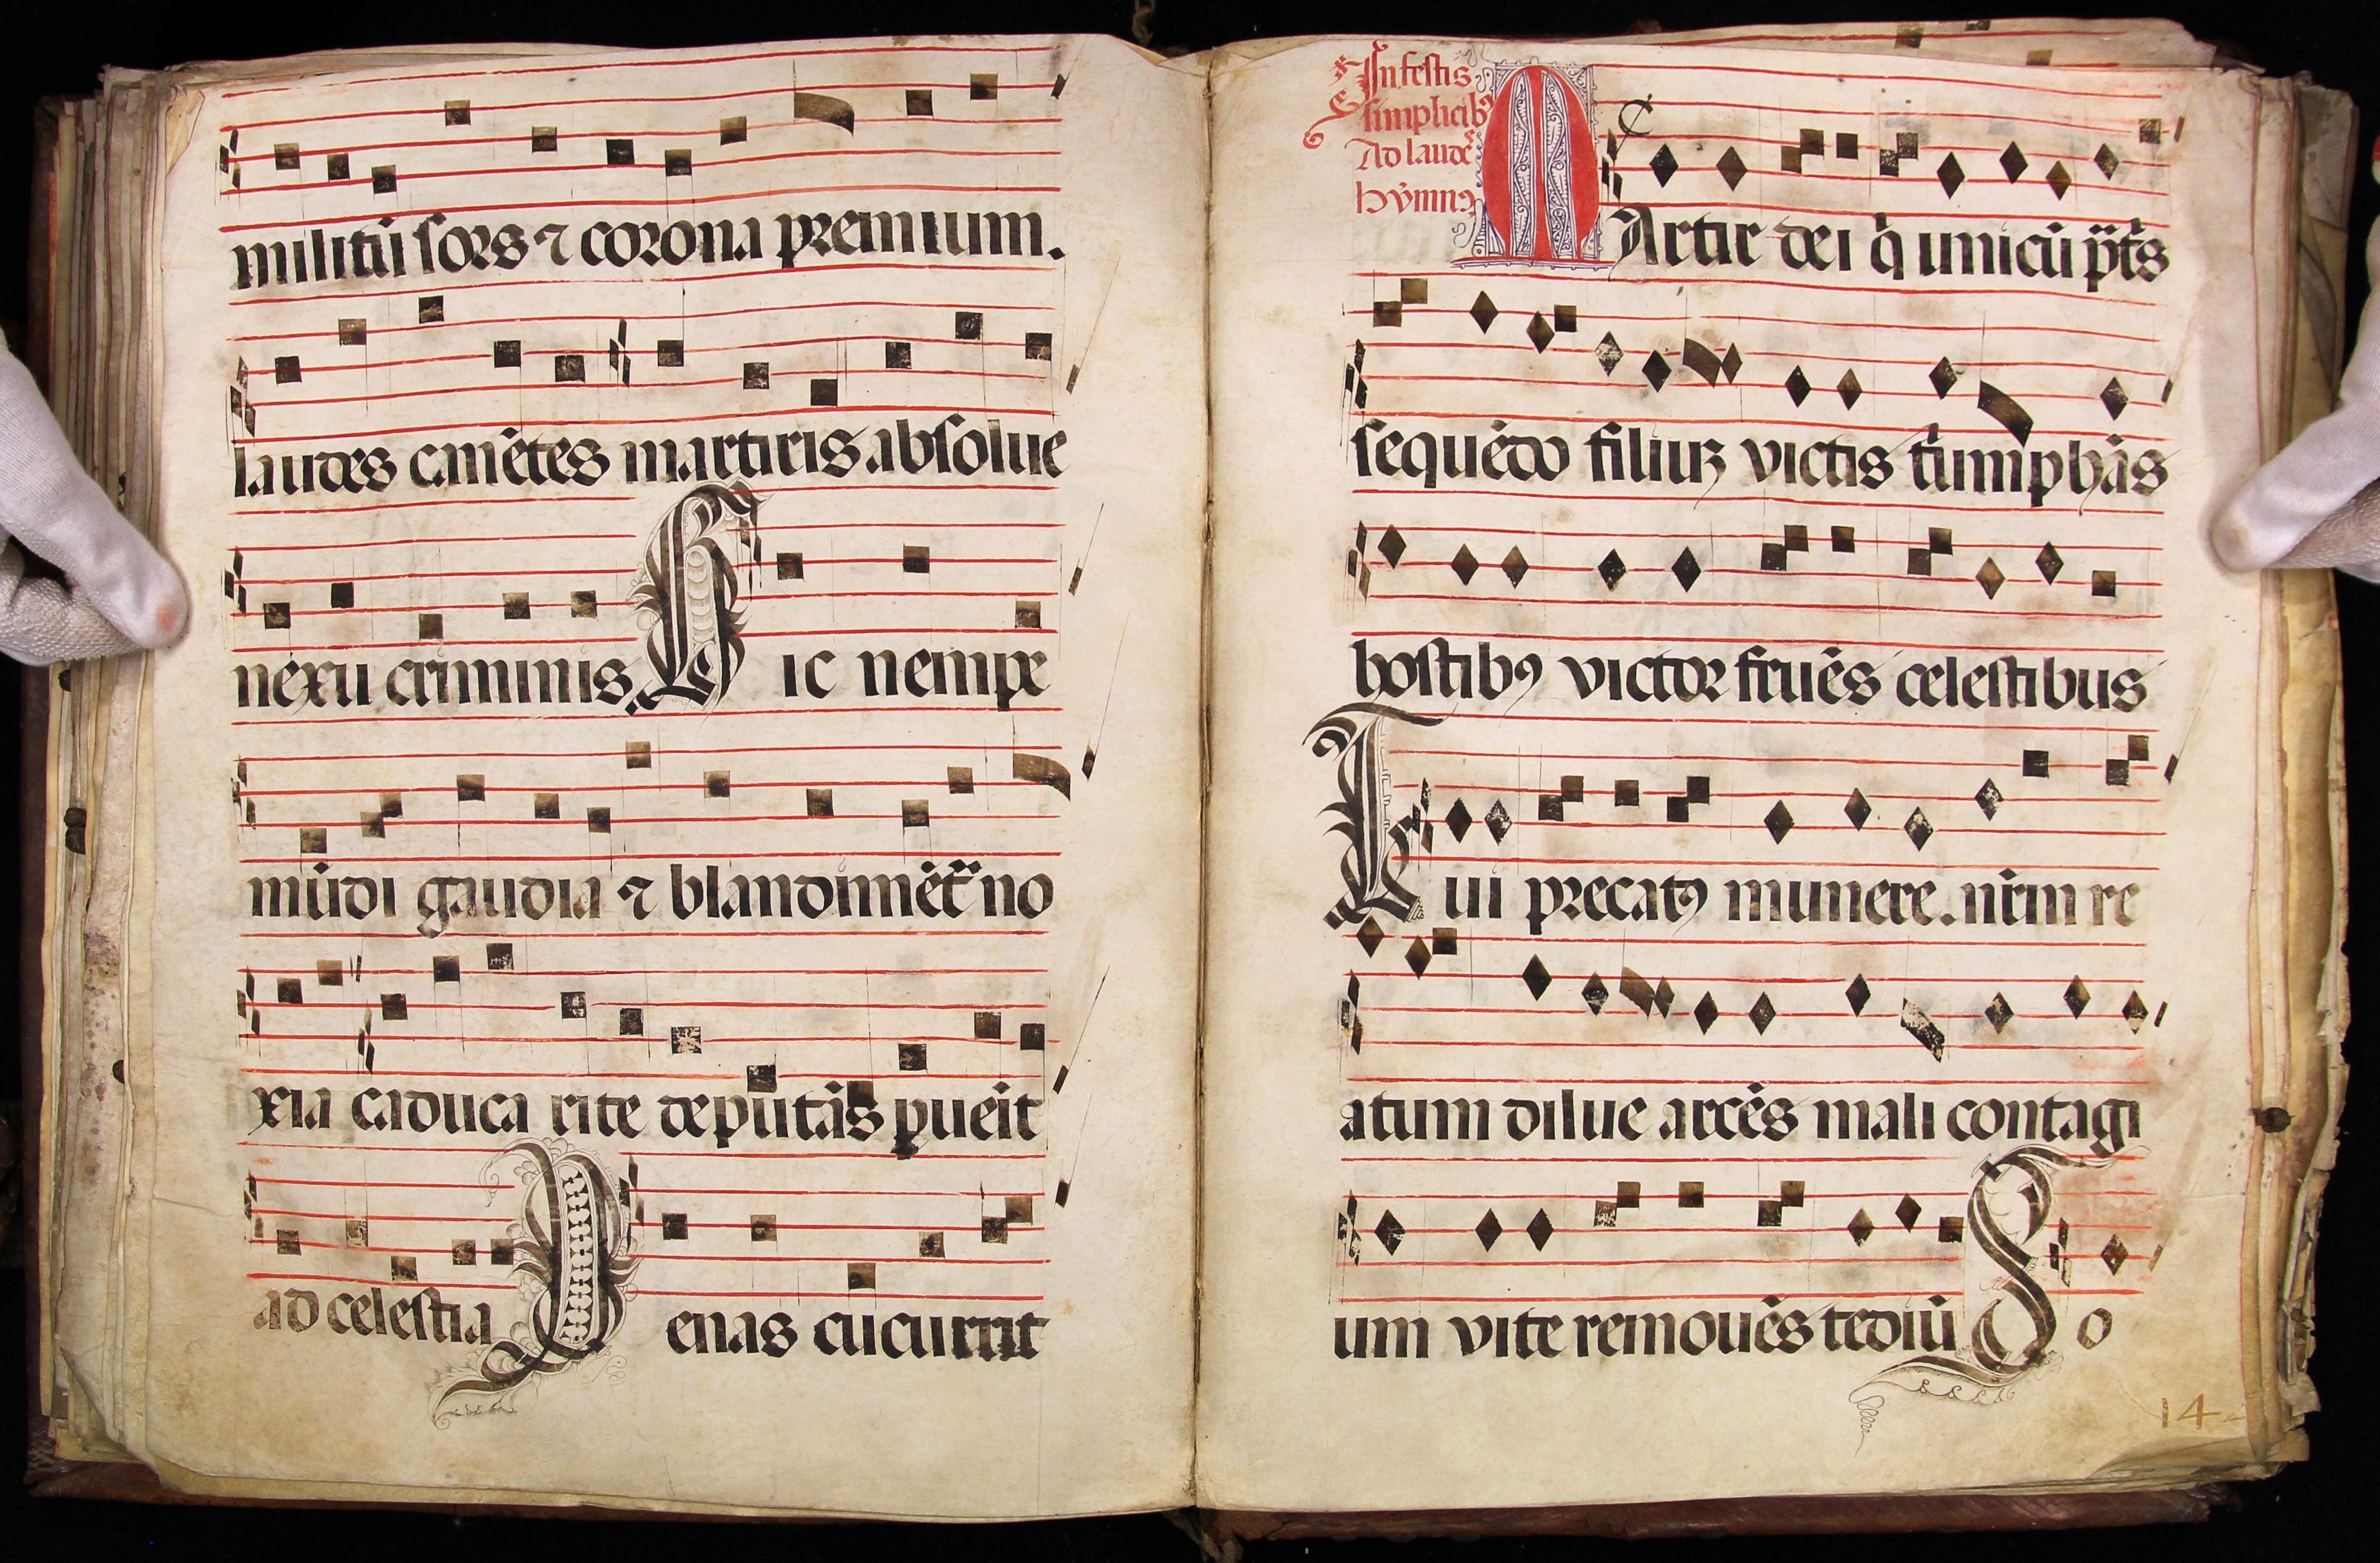 militū sors ⁊ corona premium.
laudes canētes martiris absolue
nexu criminis. Hic nempe
mūdi gaudia ⁊ no
xia caduca rite deputās ꝑueīt
ad celestia Penas cucurrit
In festis
simplicibꝰ
Ad laudes
hymnꝰ
MArtir dei q̄ unicū pr̄is
sequēdo filiuꝫ victis t̄umphās
hostibꝰ victor fruēs celestibus
Tui precatꝰ munere. nr̄m re
atum dilue arcēs mali contagi
um vite remouēs tediū So
14